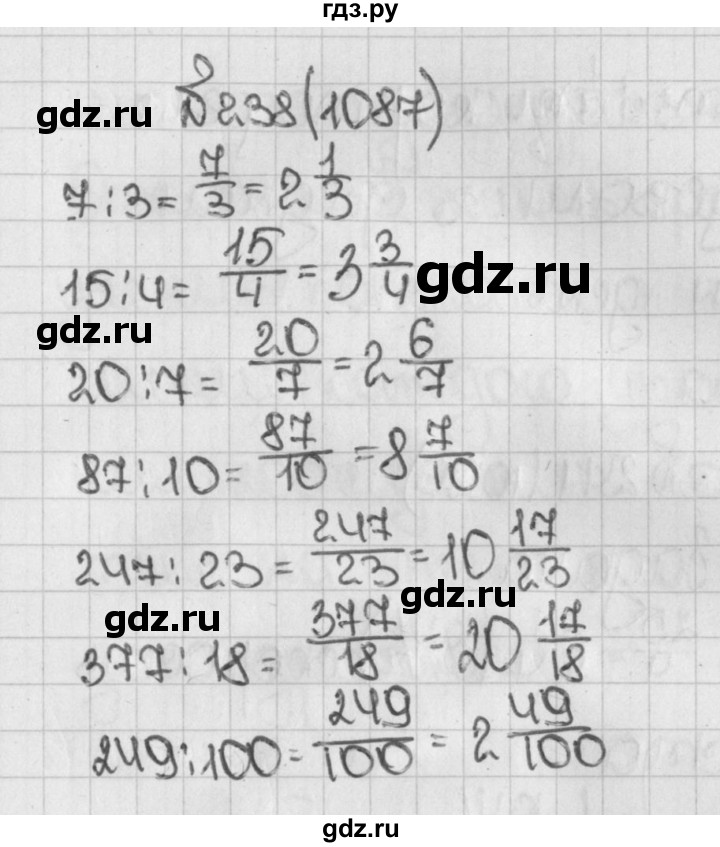 гдз.ру
gdz.ru
№238(1087)
7:3= 7/3 = 2 1/3
15:4= 15/4 = 3 3/4
gdz.ru
gdz.ru
20:7= 20/7 = 2 6/7
87:10= 87/10 = 8 7/10
247:23= 247/23 = 10 17/23
gdz.ru
gdz.ru
377:18= 377/18 = 20 17/18
249:100= 249/100 = 2 49/100
gdz.ru